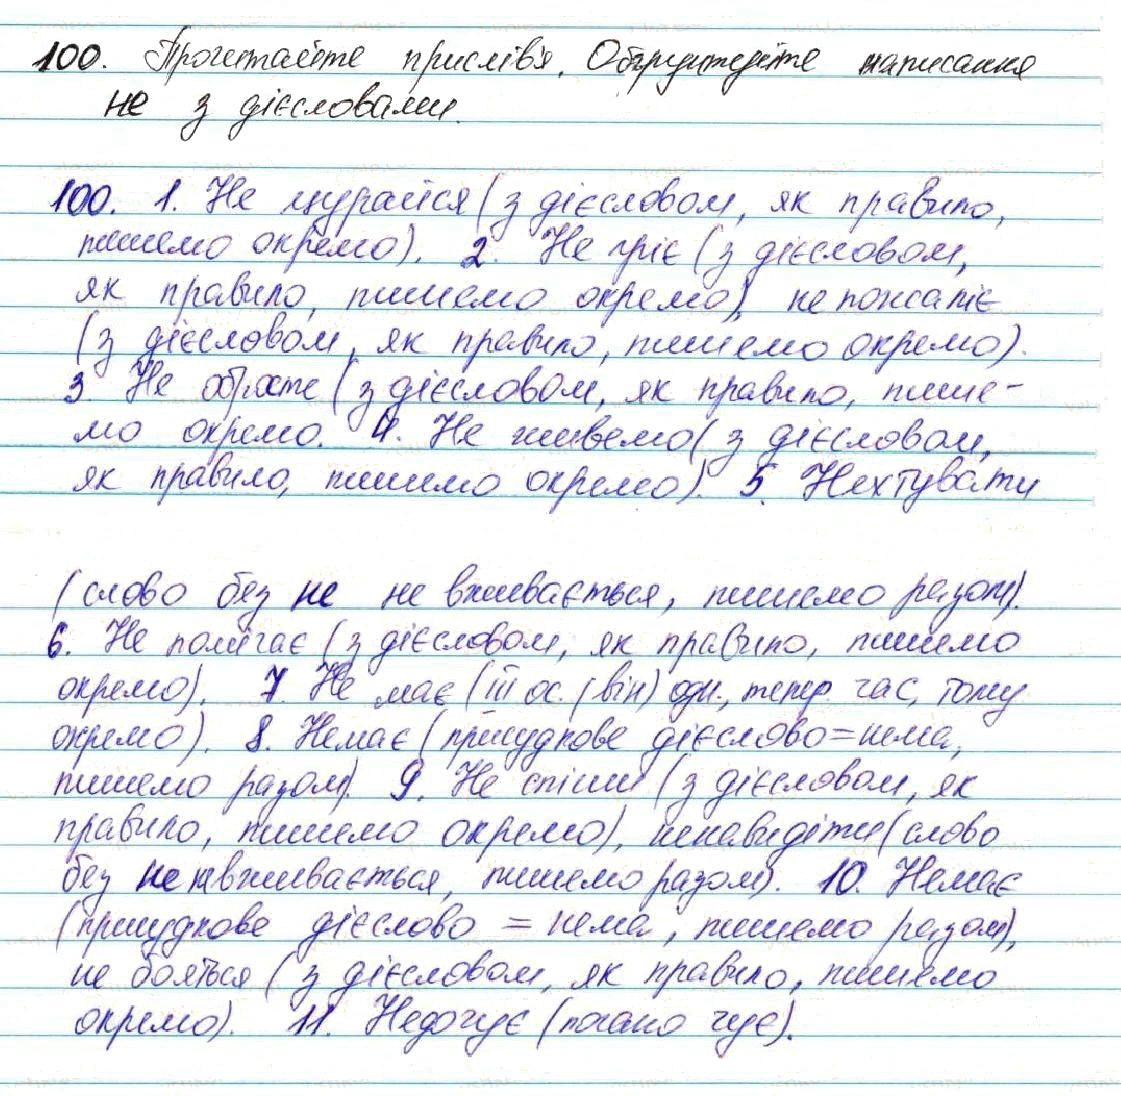 100. Прочитайте прислів'я. Обґрунтуйте написання
не з дієсловами.
100. 1. Не цурайся (з дієсловом, як правило,
пишемо окремо). 2. Не гріє (з дієсловом,
як правило, пишемо окремо), не попсаліє
(з дієсловом, як правило, пишемо окремо).
3. Не обросте (з дієсловом, як правило, пише-
мо окремо. 4. Не живемо (з дієсловом,
як правило, пишемо окремо). 5. Нехтувати
(слово без не не вживається, пишемо разом).
6. Не полягає (з дієсловом, як правило, пишемо
окремо). 7. Не має (III ос. (він) одн., тепер. час, тому
окремо). 8. Немає (присудкове дієслово = нема,
пишемо разом). 9. Не спіши (з дієсловом, як
правило, пишемо окремо), ненавидіти (слово
без не не вживається, пишемо разом). 10. Немає
(присудкове дієслово = нема, пишемо разом),
не бояться (з дієсловом, як правило, пишемо
окремо). 11. Недочує (погано чує).